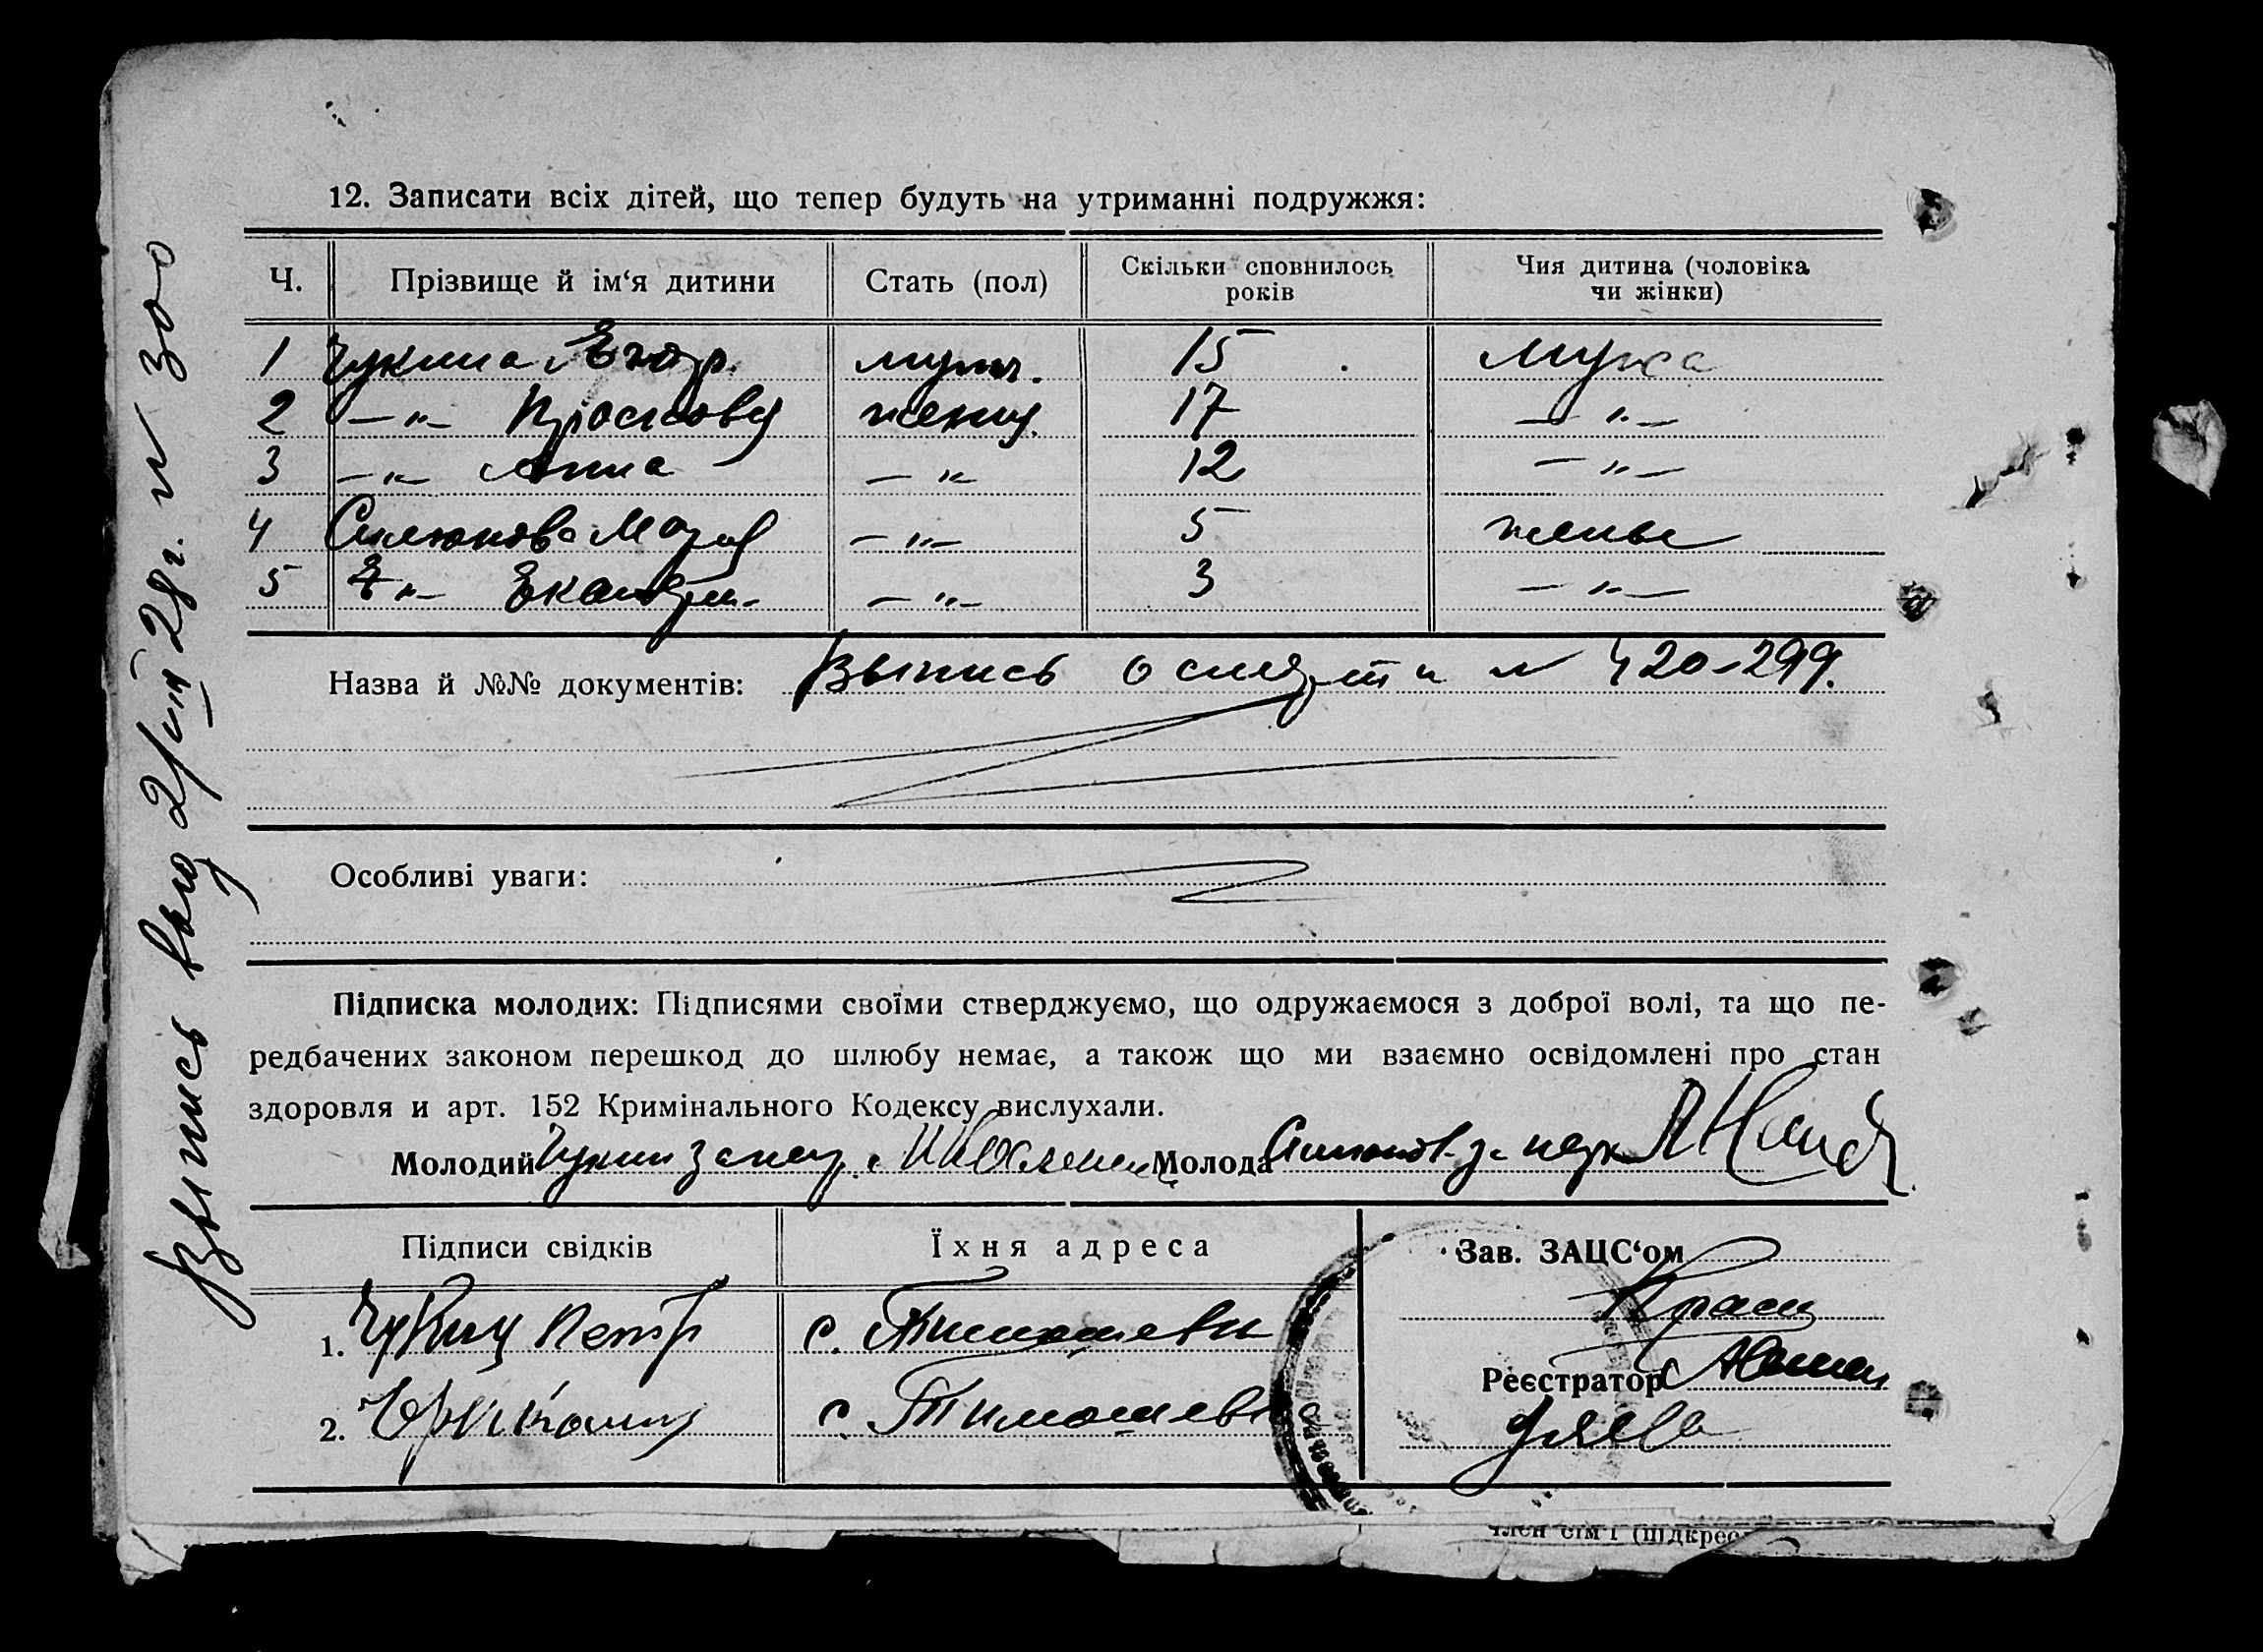 12. Записати всіх дітей, що тепер будуть на утриманні подружжя:
Ч. Прізвище й ім‘я дитини Стать (пол) Скільки сповнилось років Чия дитина (чоловіка чи жінки)
1 Чукина Егор. мужч. 15 мужа
2 —„— Просковя женщ. 17 —„—
3 —„— Анна —„— 12 —„—
4 Мария —„— 5 жены
5 —„— Екатери. —„— 3 —„—
Назва й №№ документів: Выпись о смерти № 420-299.
Особливі уваги:
Підписка молодих: Підписями своїми стверджуємо, що одружаємося з доброї волі, та що пе-
редбачених законом перешкод до шлюбу немає, а також що ми взаємно освідомлені про стан
здоровля и арт. 152 Кримінального Кодексу вислухали.
Молодий Чукин за негр. Молода за негр
Підписи свідків Їхня адреса Зав. ЗАЦС‘ом
1. Чукин Петр с. Тимошевк
Реєстратор
2. с. Тимошевк
Выпись выд 28 г. № 300
член сім'ї (підкрес